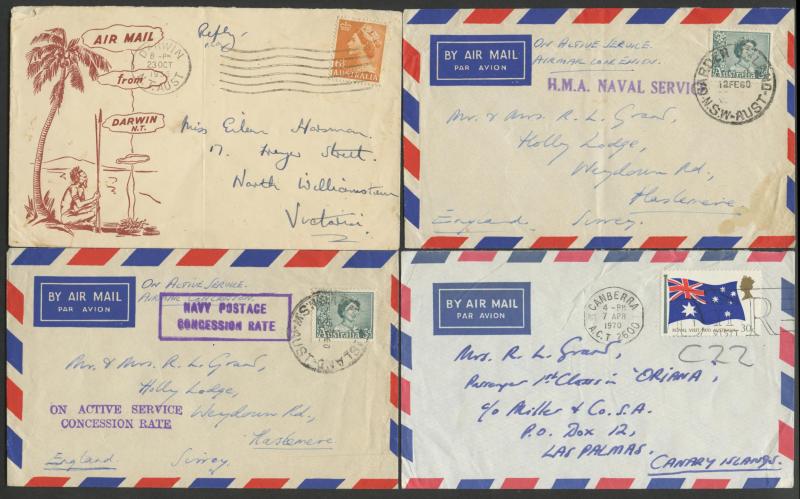 AIR MAIL
from
DARWIN
N.T.
DARWIN
8-PM
23 OCT
AUST
Reply
AUSTRALIA
Miss Eilen
Street
North Williamstown
Victoria.
BY AIR MAIL
PAR AVION
On Active Service
Airmail Concession.
H.M.A. NAVAL SERVICE
Australia
12FE60
N.S.W-AUST
Mr. & Mrs. R. L. Grand,
Holly Lodge,
Weydown Rd.,
Haslemere
England. Surrey.
BY AIR MAIL
PAR AVION
On Active Service.
Airmail Concession.
NAVY POSTAGE
CONCESSION RATE
Australia
Mr. & Mrs. R. L. Grand,
Holly Lodge,
ON ACTIVE SERVICE
CONCESSION RATE
Weydown Rd.,
Haslemere
England. Surrey.
BY AIR MAIL
PAR AVION
CANBERRA
4-PM
7 APR
1970
A.C.T 2600
ROYAL VISIT 1970 AUSTRALIA 30c
C22
Mrs. R. L. Grand,
Passenger 1st Class in "ORIANA,
c/o Miller & Co. S.A.
P.O. Box 12,
LAS PALMAS.
CANARY ISLANDS.